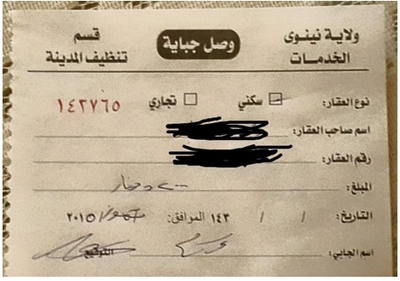 ولاية نينوى
الخدمات
وصل جباية
قسم
تنظيف المدينة
نوع العقار: سكني تجاري ١٤٢٧٦٥
اسم صاحب العقار:
رقم العقار:
المبلغ:
التاريخ: / / ١٤٣ الموافق: تموز ٢٠١٥
اسم الجابي: التوقيع